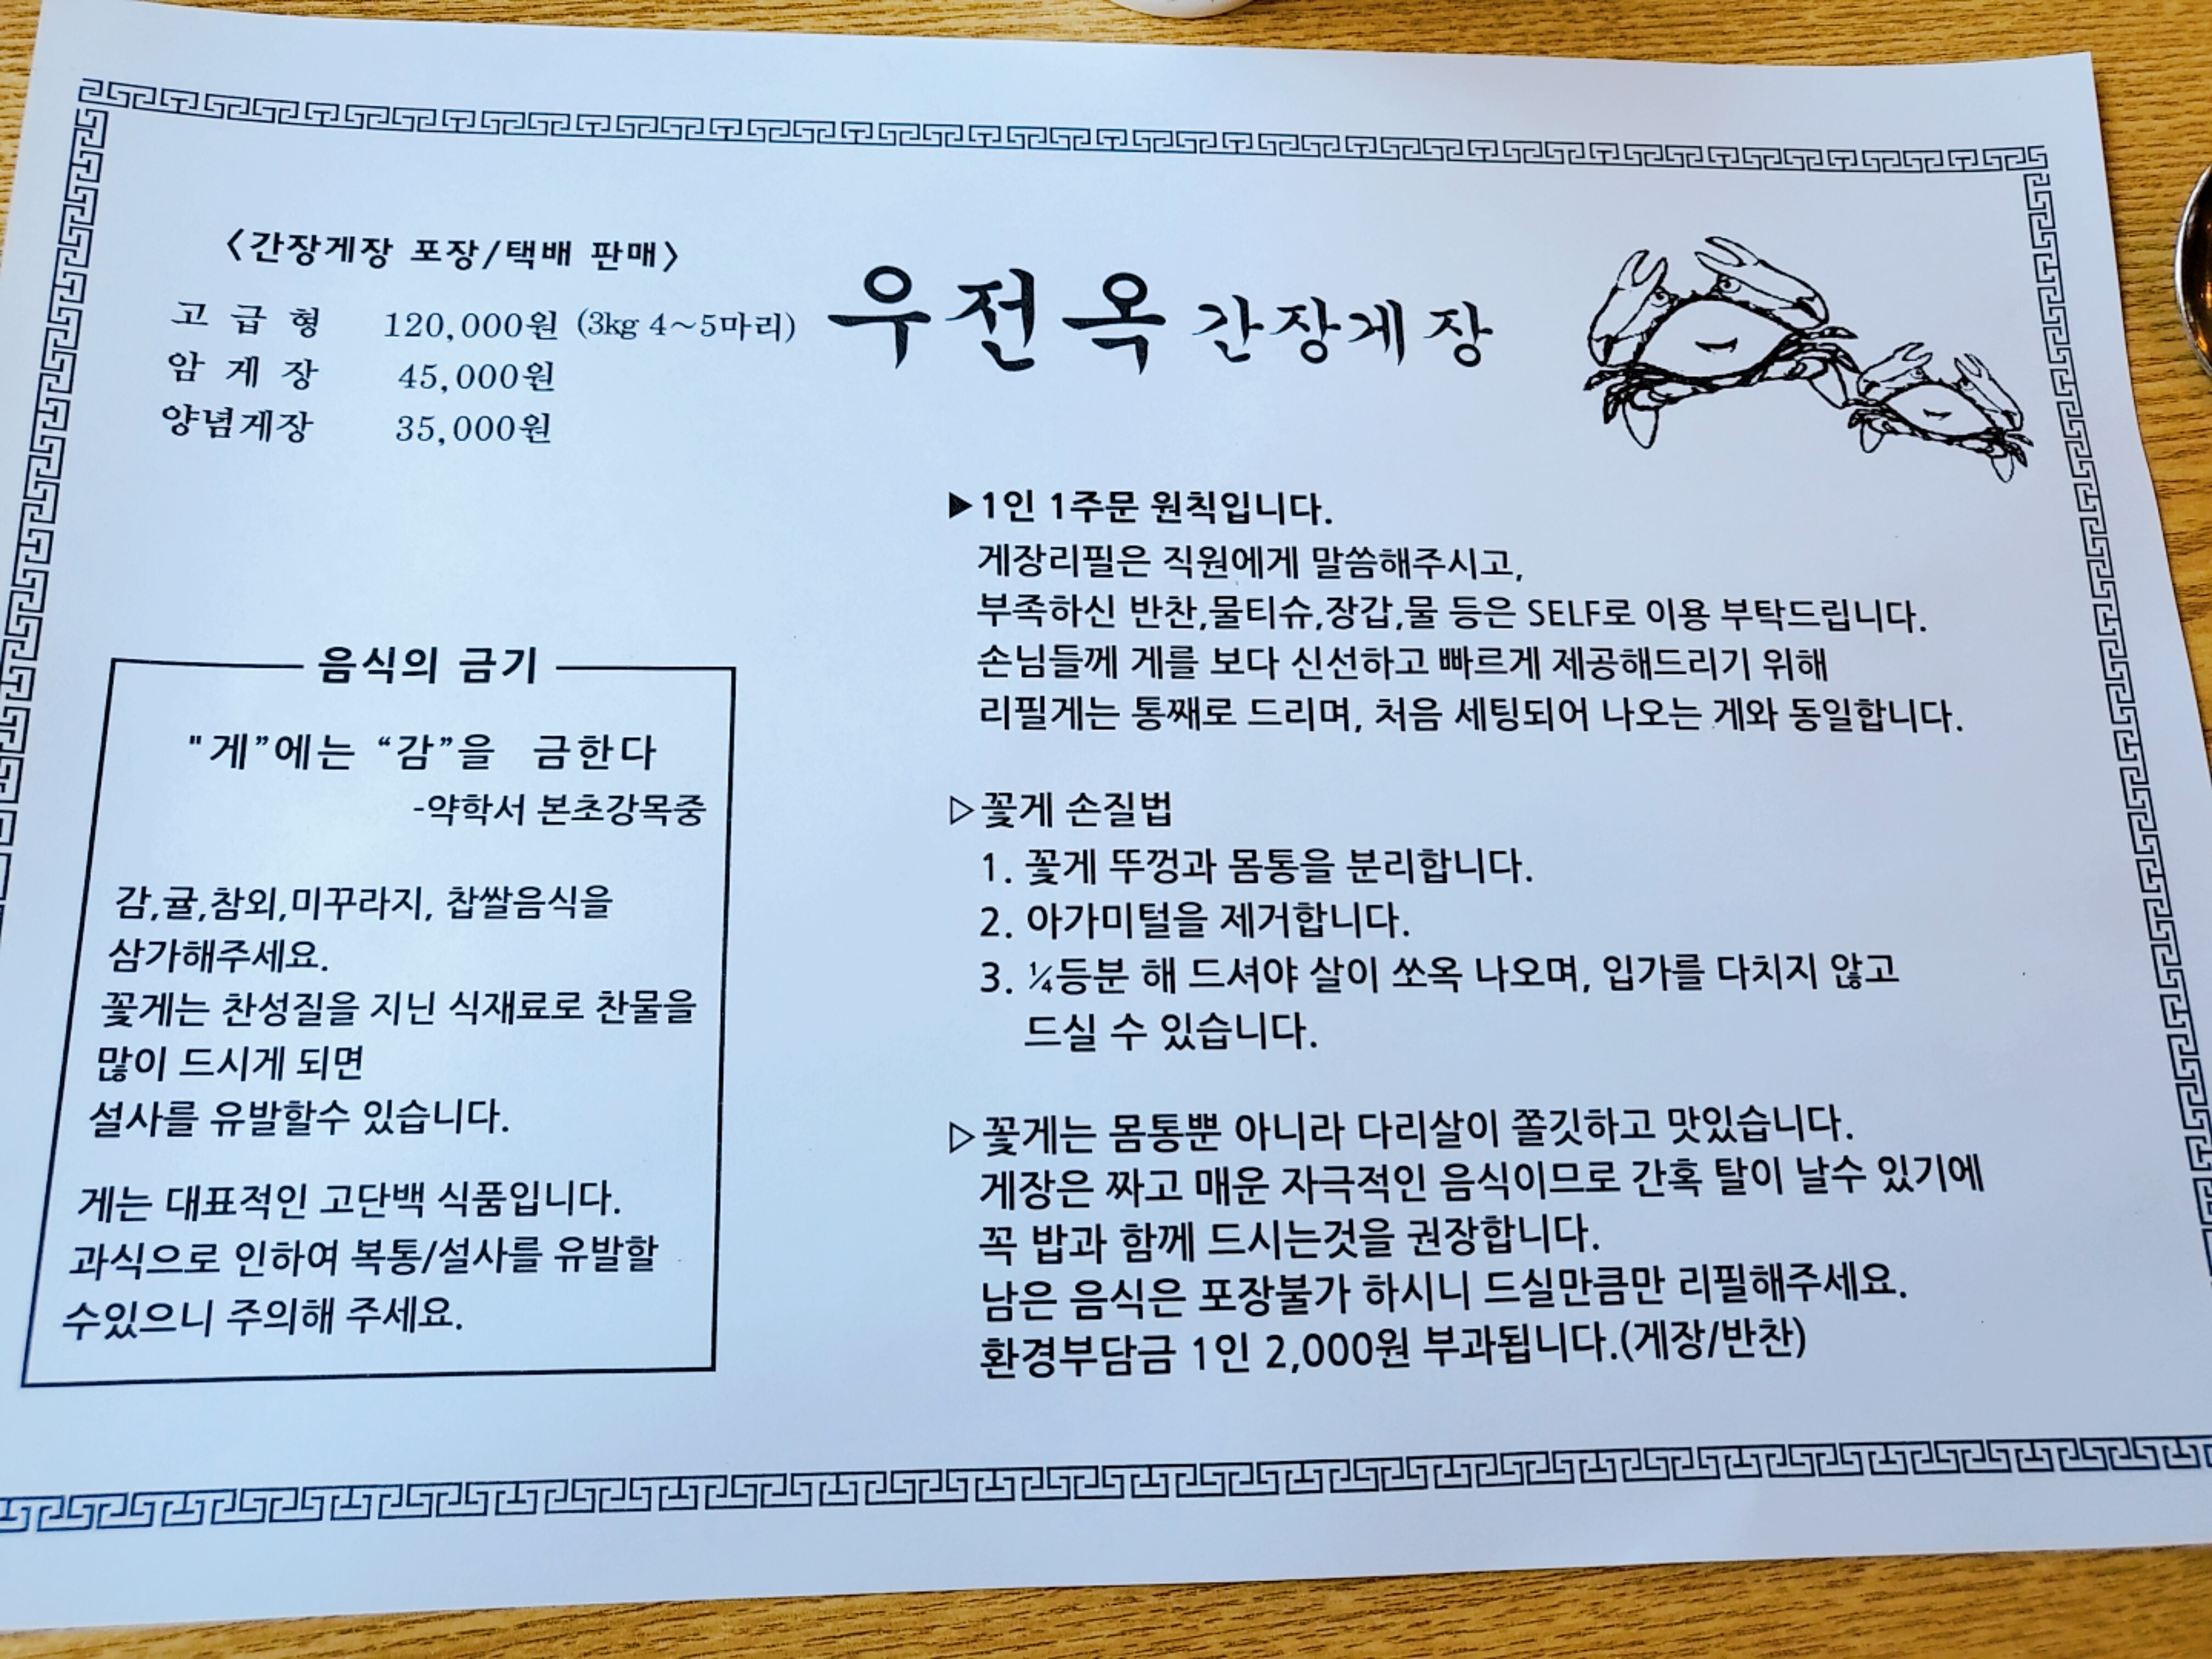 <간장게장 포장/택배 판매>
고 급 형 120,000원 (3kg 4~5마리)
암 게 장 45,000원
양념게장 35,000원
우전옥 간장게장
▶1인 1주문 원칙입니다.
게장리필은 직원에게 말씀해주시고,
부족하신 반찬,물티슈,장갑,물 등은 SELF로 이용 부탁드립니다.
손님들께 게를 보다 신선하고 빠르게 제공해드리기 위해
리필게는 통째로 드리며, 처음 세팅되어 나오는 게와 동일합니다.
▷꽃게 손질법
1. 꽃게 뚜껑과 몸통을 분리합니다.
2. 아가미털을 제거합니다.
3. ¼등분 해 드셔야 살이 쏘옥 나오며, 입가를 다치지 않고
드실 수 있습니다.
▷꽃게는 몸통뿐 아니라 다리살이 쫄깃하고 맛있습니다.
게장은 짜고 매운 자극적인 음식이므로 간혹 탈이 날수 있기에
꼭 밥과 함께 드시는것을 권장합니다.
남은 음식은 포장불가 하시니 드실만큼만 리필해주세요.
환경부담금 1인 2,000원 부과됩니다.(게장/반찬)
음식의 금기
"게”에는 “감”을 금한다
-약학서 본초강목중
감,귤,참외,미꾸라지, 찹쌀음식을
삼가해주세요.
꽃게는 찬성질을 지닌 식재료로 찬물을
많이 드시게 되면
설사를 유발할수 있습니다.
게는 대표적인 고단백 식품입니다.
과식으로 인하여 복통/설사를 유발할
수있으니 주의해 주세요.